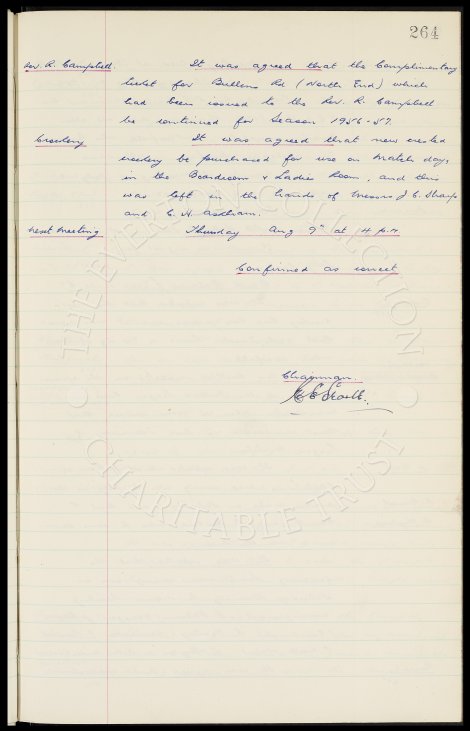 264
Rev. R. Campbell. It was agreed that the Complimentary
ticket for Bullens Rd (North End) which
had been issued to the Rev. R. Campbell
be continued for Season 1956-57.
Crockery It was agreed that new crested
crockery be purchased for use on match days
in the Boardroom & Ladies Room, and this
was left in the hands of Messrs J. C. Sharp
and C. H. Askham.
Next Meeting Thursday Aug 9th at 4 p.m.
Confirmed as correct
Chairman.
THE EVERTON COLLECTION
CHARITABLE TRUST